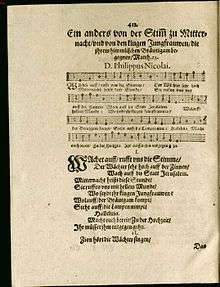 412.
Ein anders von der Stim̃ zu Mitter-
nacht/ vnd von den klugen Jungfrauwen/ die
jhrem himmlischen Bräutigam be-
gegnen/ Matth. 25.
D. Philippus Nicolai.
WAchet auff/ rufft vns die Stimme/
Der Wächter sehr hoch auff der Zinnen/
Wach auff du Statt Jerusalem.
Mitternacht heißt diese Stunde/
Sie ruffen vns mit hellem Munde/
Wo seydt jhr klugen Jungfrauwen?
Wolauff/ der Bräutgam kompt/
Steht auff/ die Lampen nimpt/
Halleluia.
Macht euch bereit/ Zu der Hochzeit/
Ihr müsset jhm entgegen gehn.
Zion hört die Wächter singen/
Das